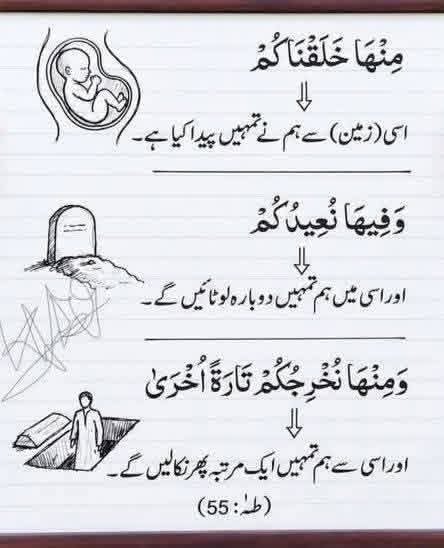 مِنْهَا خَلَقْنَاكُمْ
اسی (زمین) سے ہم نے تمہیں پیدا کیا ہے۔
وَفِيهَا نُعِيدُكُمْ
اور اسی میں ہم تمہیں دوبارہ لوٹائیں گے۔
وَمِنْهَا نُخْرِجُكُمْ تَارَةً أُخْرَىٰ
اور اسی سے ہم تمہیں ایک مرتبہ پھر نکالیں گے۔
(طہٰ: 55)